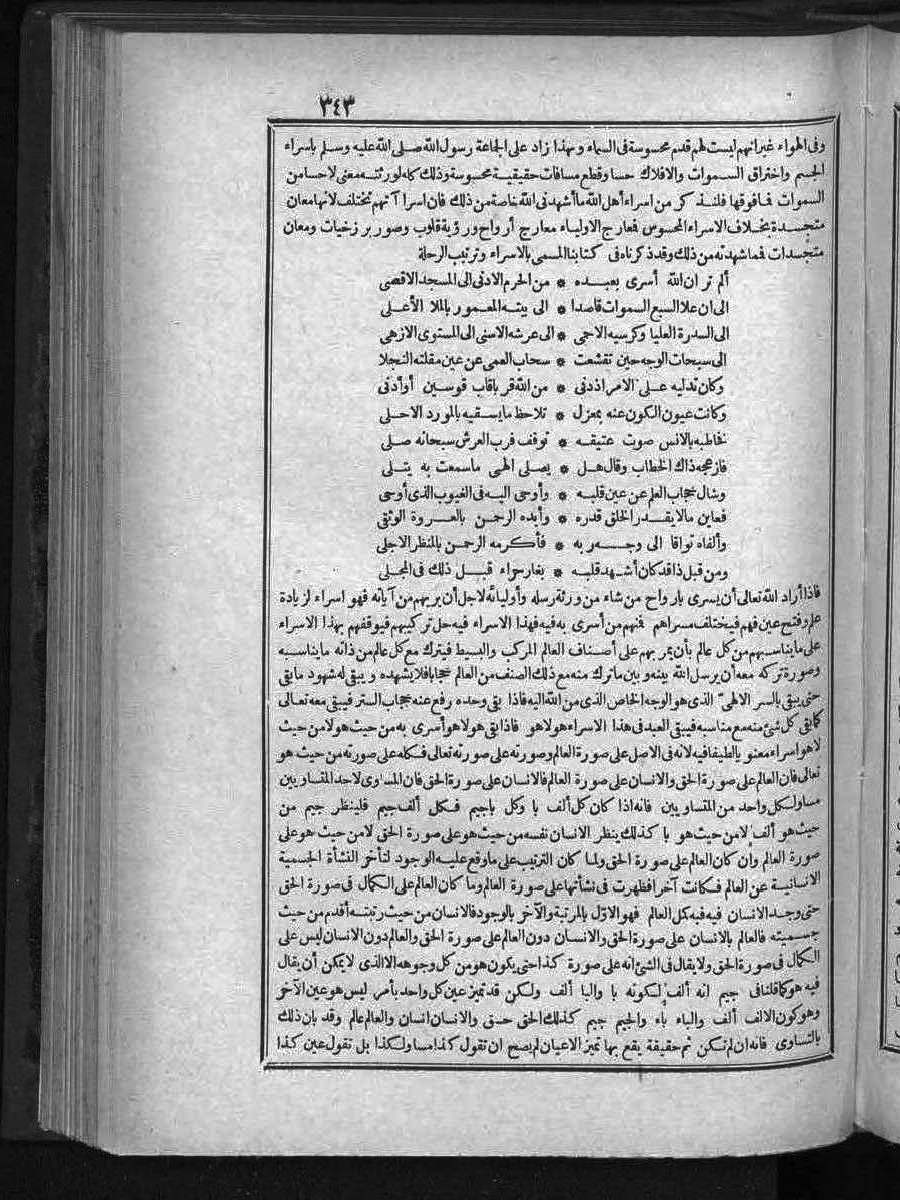 ٣٤٣
وفي الهواء غير انهم ليست لهم قدم محسوسة في السماء وبهذا زاد على الجماعة رسول الله صلى الله عليه وسلم باسراء
الجسم واختراق السموات والافلاك حسا وقطع مسافات حقيقية محسوسة وذلك كله لورثته معنى لا حسا من
السموات فما فوقها فلنذكر من اسراء أهل الله ما أشهدني الله خاصة من ذلك فان اسرا آتهم تختلف لانها معان
متجسدة بخلاف الاسراء المحسوس فمعارج الاولياء معارج أرواح ورؤية قلوب وصور برزخيات ومعان
متجسدات فما شهدته من ذلك وقد ذكرناه في كتابنا المسمى بالاسراء وترتيب الرحلة
ألم تر ان الله أسرى بعبده * من الحرم الادنى الى المسجد الاقصى
الى ان علا السبع السموات قاصدا * الى بيته المعمور بالملا الأعلى
الى السدرة العليا وكرسيه الاحمى * الى عرشه الاسنى الى المستوى الازهى
الى سبحات الوجه حين تقشعت * سحاب العمى عن عين مقلته النجلا
وكان تدليه على الامر اذ دنى * من الله قربا قاب قوسين أو أدنى
وكانت عيون الكون عنه بمعزل * تلاحظ ما يسقيه بالمورد الاحلى
يخاطبه بالانس صوت عتيقه * توقف فرب العرش سبحانه صلى
فازعجه ذاك الخطاب وقال هل * يصلي الهي ما سمعت به يتلى
وشال حجاب العلم عن عين قلبه * وأوحى اليه في الغيوب الذي أوحى
فعاين ما لا يقدر الخلق قدره * وأيده الرحمن بالعروة الوثقى
وألفاه تواقا الى وجه ربه * فأكرمه الرحمن بالمنظر الاجلى
ومن قبل ذا قد كان أشهد قلبه * بغار حراء قبل ذلك في المجلى
فاذا أراد الله تعالى أن يسري بارواح من شاء من ورثة رسله وأوليائه لاجل أن يريهم من آياته فهو اسراء لزيادة
علم وفتح عين فهم فيختلف مسراهم فمنهم من أسرى به فيه فهذا الاسراء فيه حل تركيبهم فيوقفهم بهذا الاسراء
على ما يناسبهم من كل عالم بأن يمر بهم على أصناف العالم المركب والبسيط فيترك مع كل عالم من ذاته ما يناسبه
وصورة تركه معه أن يرسل الله بينه وبين ما ترك منه مع ذلك الصنف من العالم حجابا فلا يشهده ويبقى له شهود ما بقي
حتى يبقى بالسر الالهي الذي هو الوجه الخاص الذي من الله اليه فاذا بقي وحده رفع عنه حجاب الستر فيبقى معه تعالى
كما بقي كل شئ منه مع مناسبه فيبقى العبد في هذا الاسراء هو لا هو فاذا بقي هو لا هو أسرى به من حيث هو لا من حيث
لا هو اسراء معنويا لطيفا فيه لانه في الاصل على صورة العالم وصورته على صورته تعالى فكله على صورته من حيث هو
تعالى فان العالم على صورة الحق والانسان على صورة العالم فالانسان على صورة الحق فان المساوي لاحد المتساويين
مساو لكل واحد من المتساويين فانه اذا كان كل ألف با وكل با جيم فكل ألف جيم فلينظر جيم من
حيث هو ألف لا من حيث هو با كذلك ينظر الانسان نفسه من حيث هو على صورة الحق لا من حيث هو على
صورة العالم وان كان العالم على صورة الحق ولما كان الترتيب على ما وقع عليه الوجود لتأخر النشأة الجسمية
الانسانية عن العالم فكانت آخرا فظهرت في نشأتها على صورة العالم وما كان العالم على الكمال في صورة الحق
حتى وجد الانسان فيه فبه كمل العالم فهو الاول بالمرتبة والآخر بالوجود فالانسان من حيث رتبته أقدم من حيث
جسميته فالعالم بالانسان على صورة الحق والانسان دون العالم على صورة الحق والعالم دون الانسان ليس على
الكمال في صورة الحق ولا يقال في الشئ انه على صورة كذا حتى يكون هو من كل وجوهه الا الذي لا يمكن أن يقال
فيه هو كما قلنا في جيم انه ألف لكونه با والبا ألف ولكن قد تميز عين كل واحد بأمر ليس هو عين الآخر
وهو كون الالف ألف والباء باء والجيم جيم كذلك الحق حق والانسان انسان والعالم عالم وقد بان ذلك
بالتساوي فانه ان لم تكن ثم حقيقة يقع بها تميز الاعيان لم يصح ان تقول كذا مساو لكذا بل تقول عين كذا